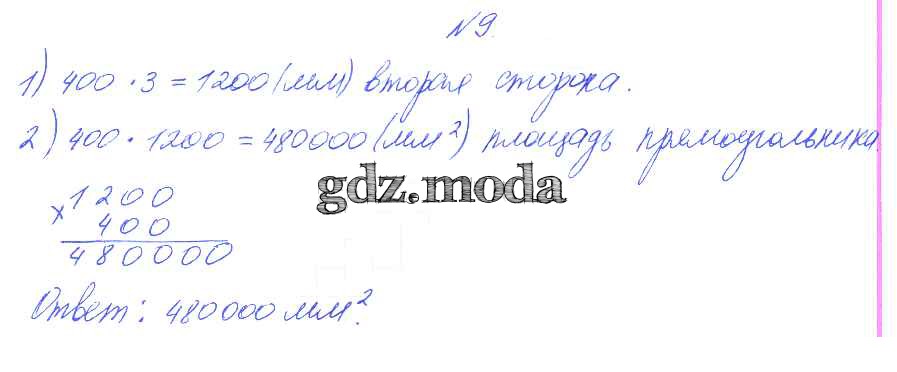 №9.
1) 400 · 3 = 1200 (мм) вторая сторона.
2) 400 · 1200 = 480000 (мм²) площадь прямоугольника.
gdz.moda
× 1200
400
480000
Ответ: 480000 мм².